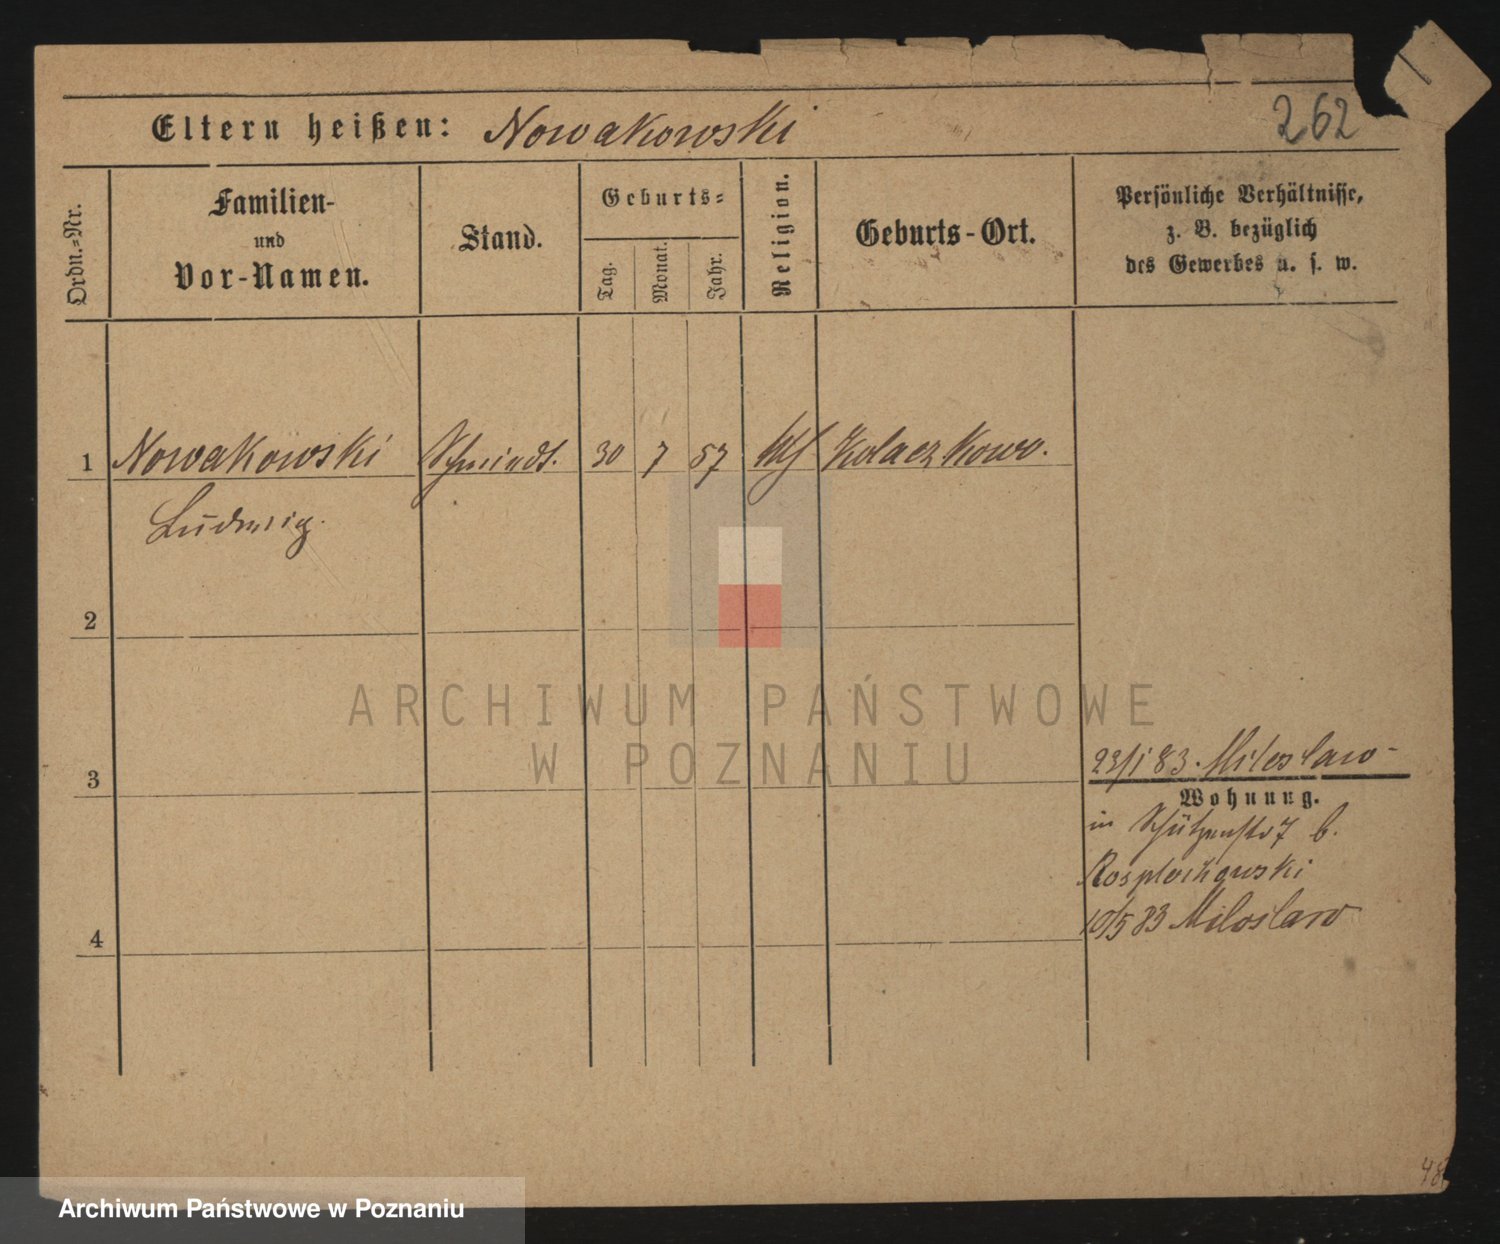 Eltern heißen: Nowakowski
262
Ordn.=Nr.
Familien-
und
Vor-Namen.
Stand.
Geburts=
Tag.
Monat.
Jahr.
Religion.
Geburts-Ort.
Persönliche Verhältnisse,
z. B. bezüglich
des Gewerbes u. s. w.
1 Nowakowski 30 7 57 Kolaczkowo.
Ludwig.
2
ARCHIWUM PAŃSTWOWE
W POZNANIU
23/1 83. Miloslaw
3
Wohnung.
in Schützenstr 7 b.
10/5 83 Miloslaw
4
48
Archiwum Państwowe w Poznaniu